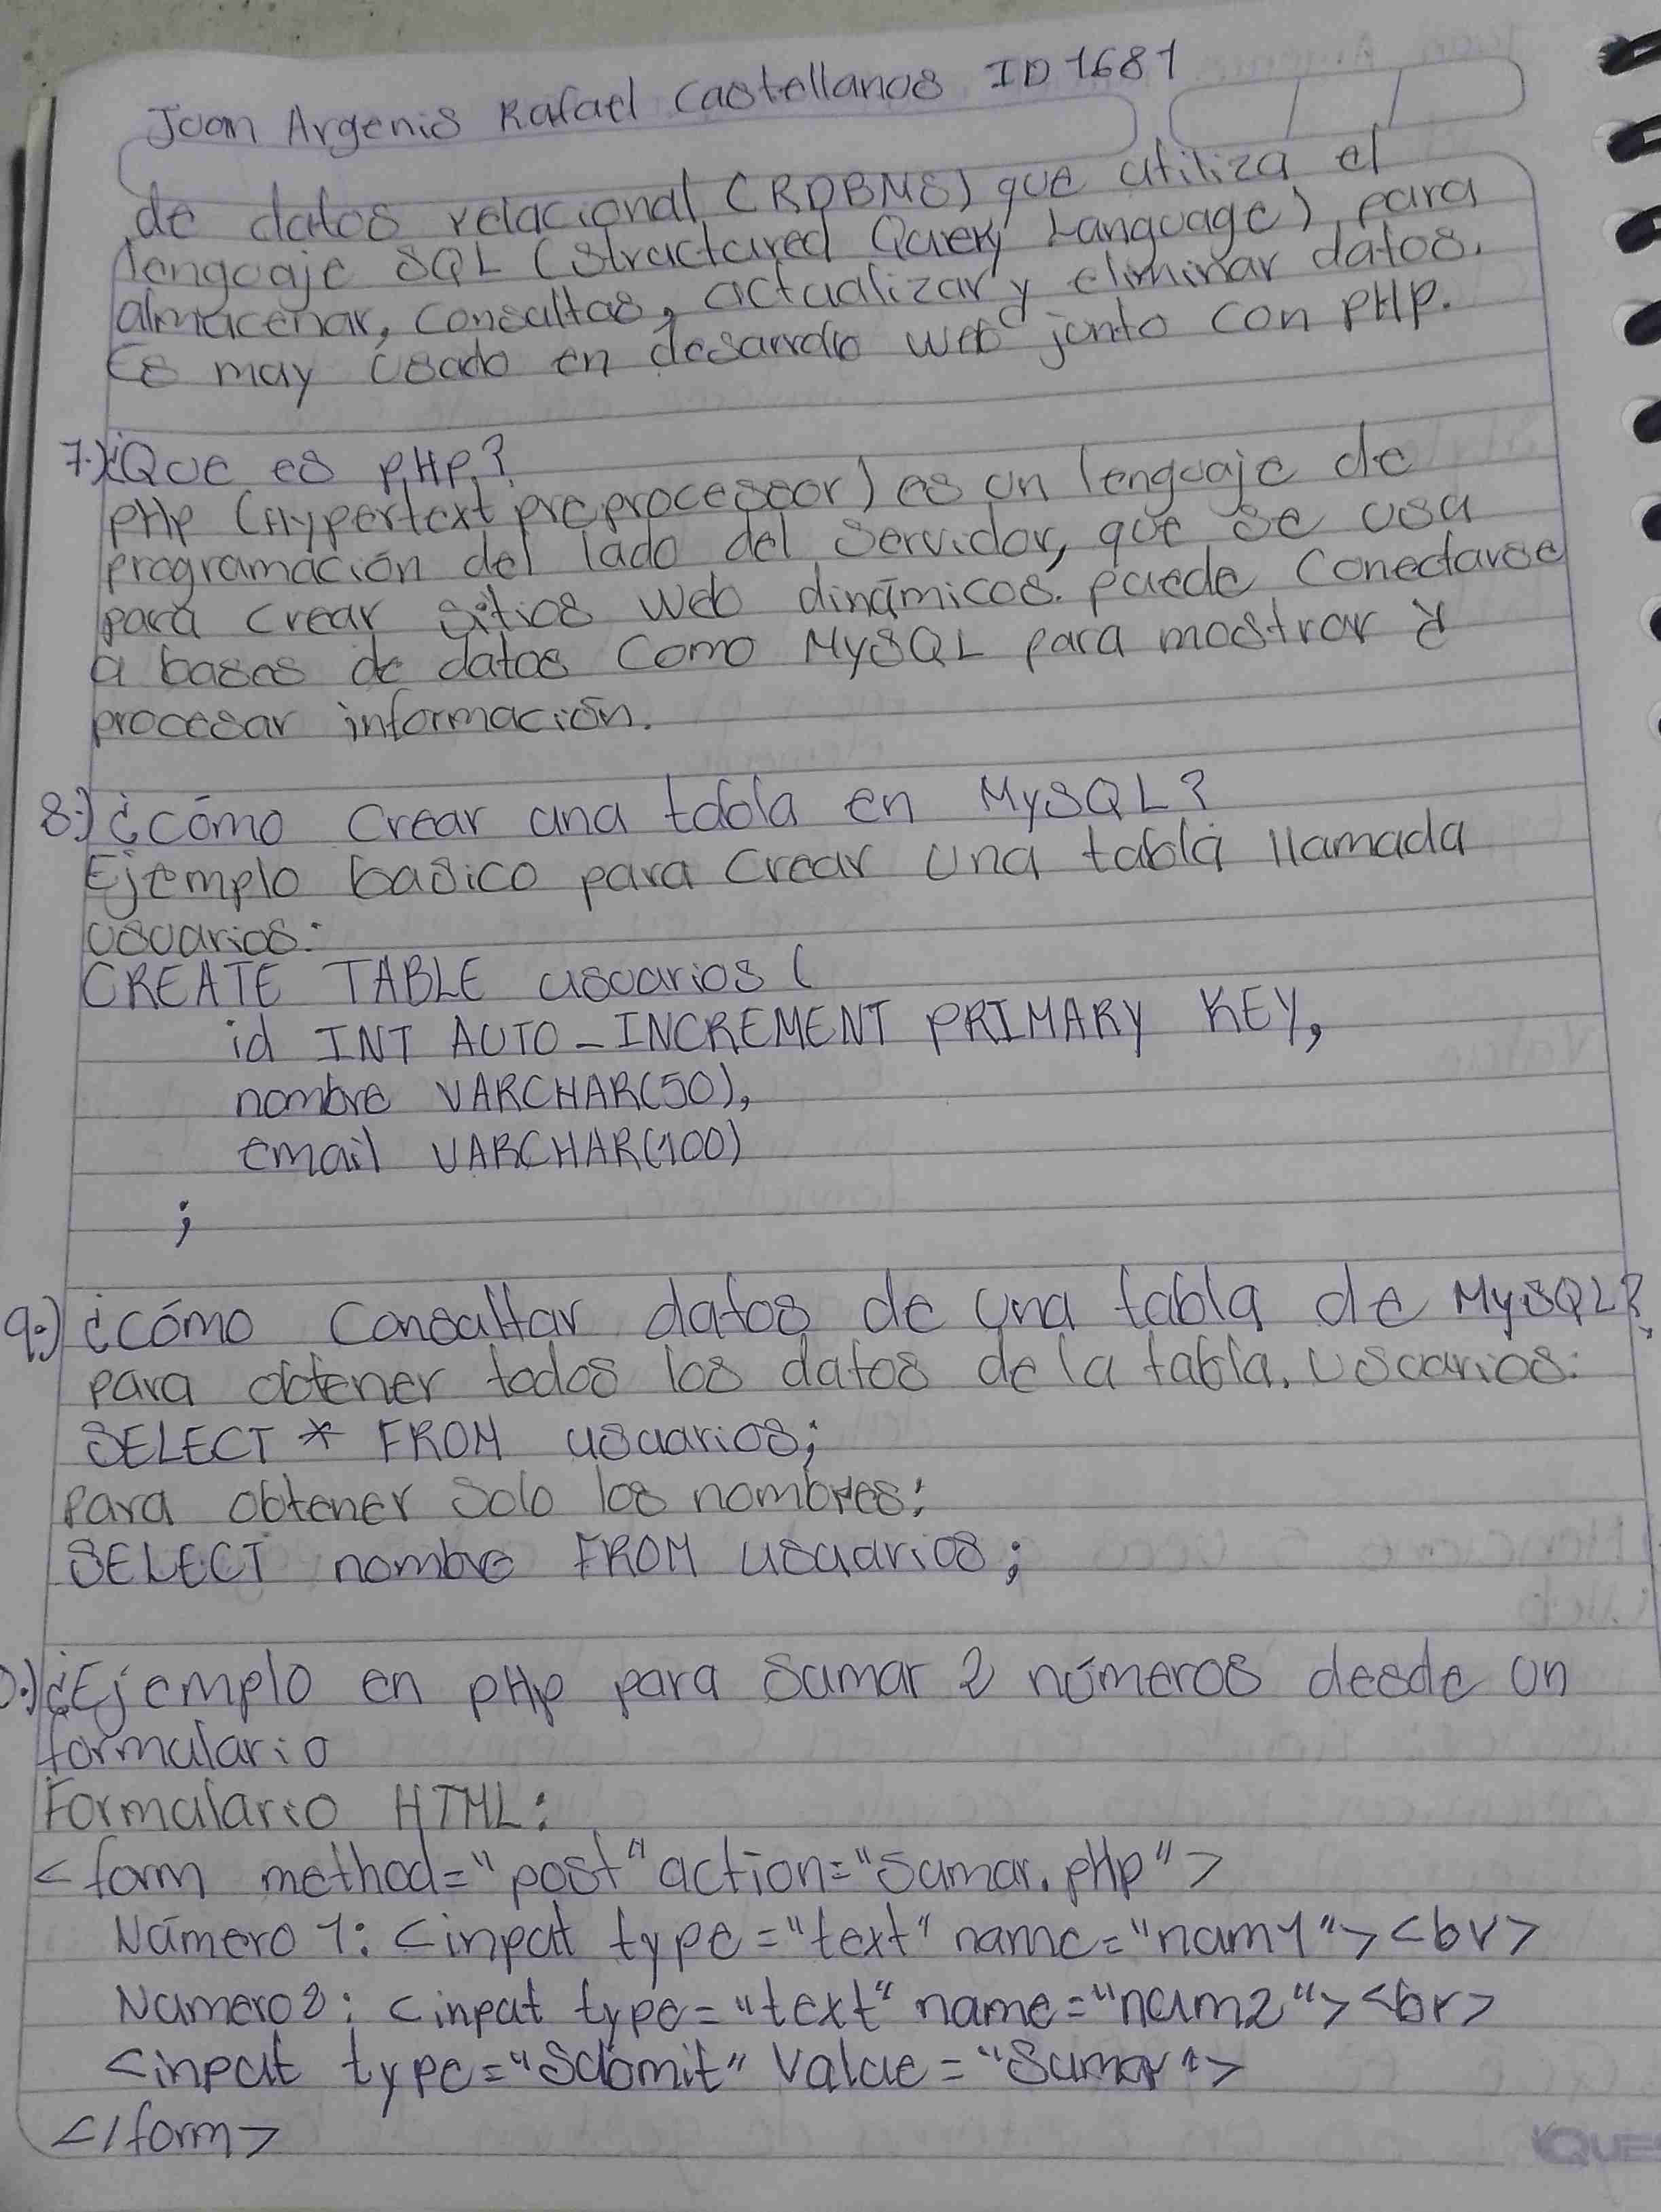 Joan Argenis Rafael Castellanos ID 1681
de datos relacional (RDBMS) que utiliza el
lenguaje SQL (Structured Query Language) para
almacenar, consultas, actualizar y eliminar datos.
Es muy usado en desarrollo web junto con PHP.
7.) ¿Que es PHP?
PHP (Hypertext preprocessor) es un lenguaje de
programación del lado del servidor, que se usa
para crear sitios web dinámicos. puede conectarse
a bases de datos como MySQL para mostrar y
procesar información.
8.) ¿cómo crear una tabla en MySQL?
Ejemplo basico para crear una tabla llamada
usuarios:
CREATE TABLE usuarios (
id INT AUTO_INCREMENT PRIMARY KEY,
nombre VARCHAR(50),
email VARCHAR(100)
;
9.) ¿cómo consultar datos de una tabla de MySQL?
para obtener todos los datos de la tabla. usuarios:
SELECT * FROM usuarios;
Para obtener solo los nombres:
SELECT nombre FROM usuarios;
0.) ¿Ejemplo en PHP para sumar 2 números desde un
formulario
Formulario HTML:
<form method="post" action="sumar.php">
Número 1: <input type="text" name="num1"><br>
Numero 2: <input type="text" name="num2"><br>
<input type="submit" value="Sumar">
</form>